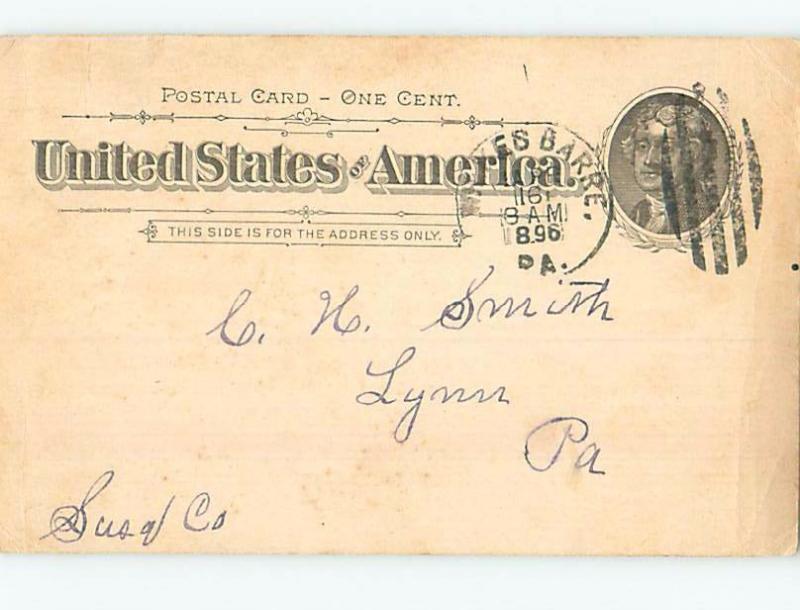 POSTAL CARD – ONE CENT.
United States OF America.
THIS SIDE IS FOR THE ADDRESS ONLY.
WILKES BARRE,
16
8 AM
896
PA.
C. H. Smith
Lynn
Pa
Susq Co